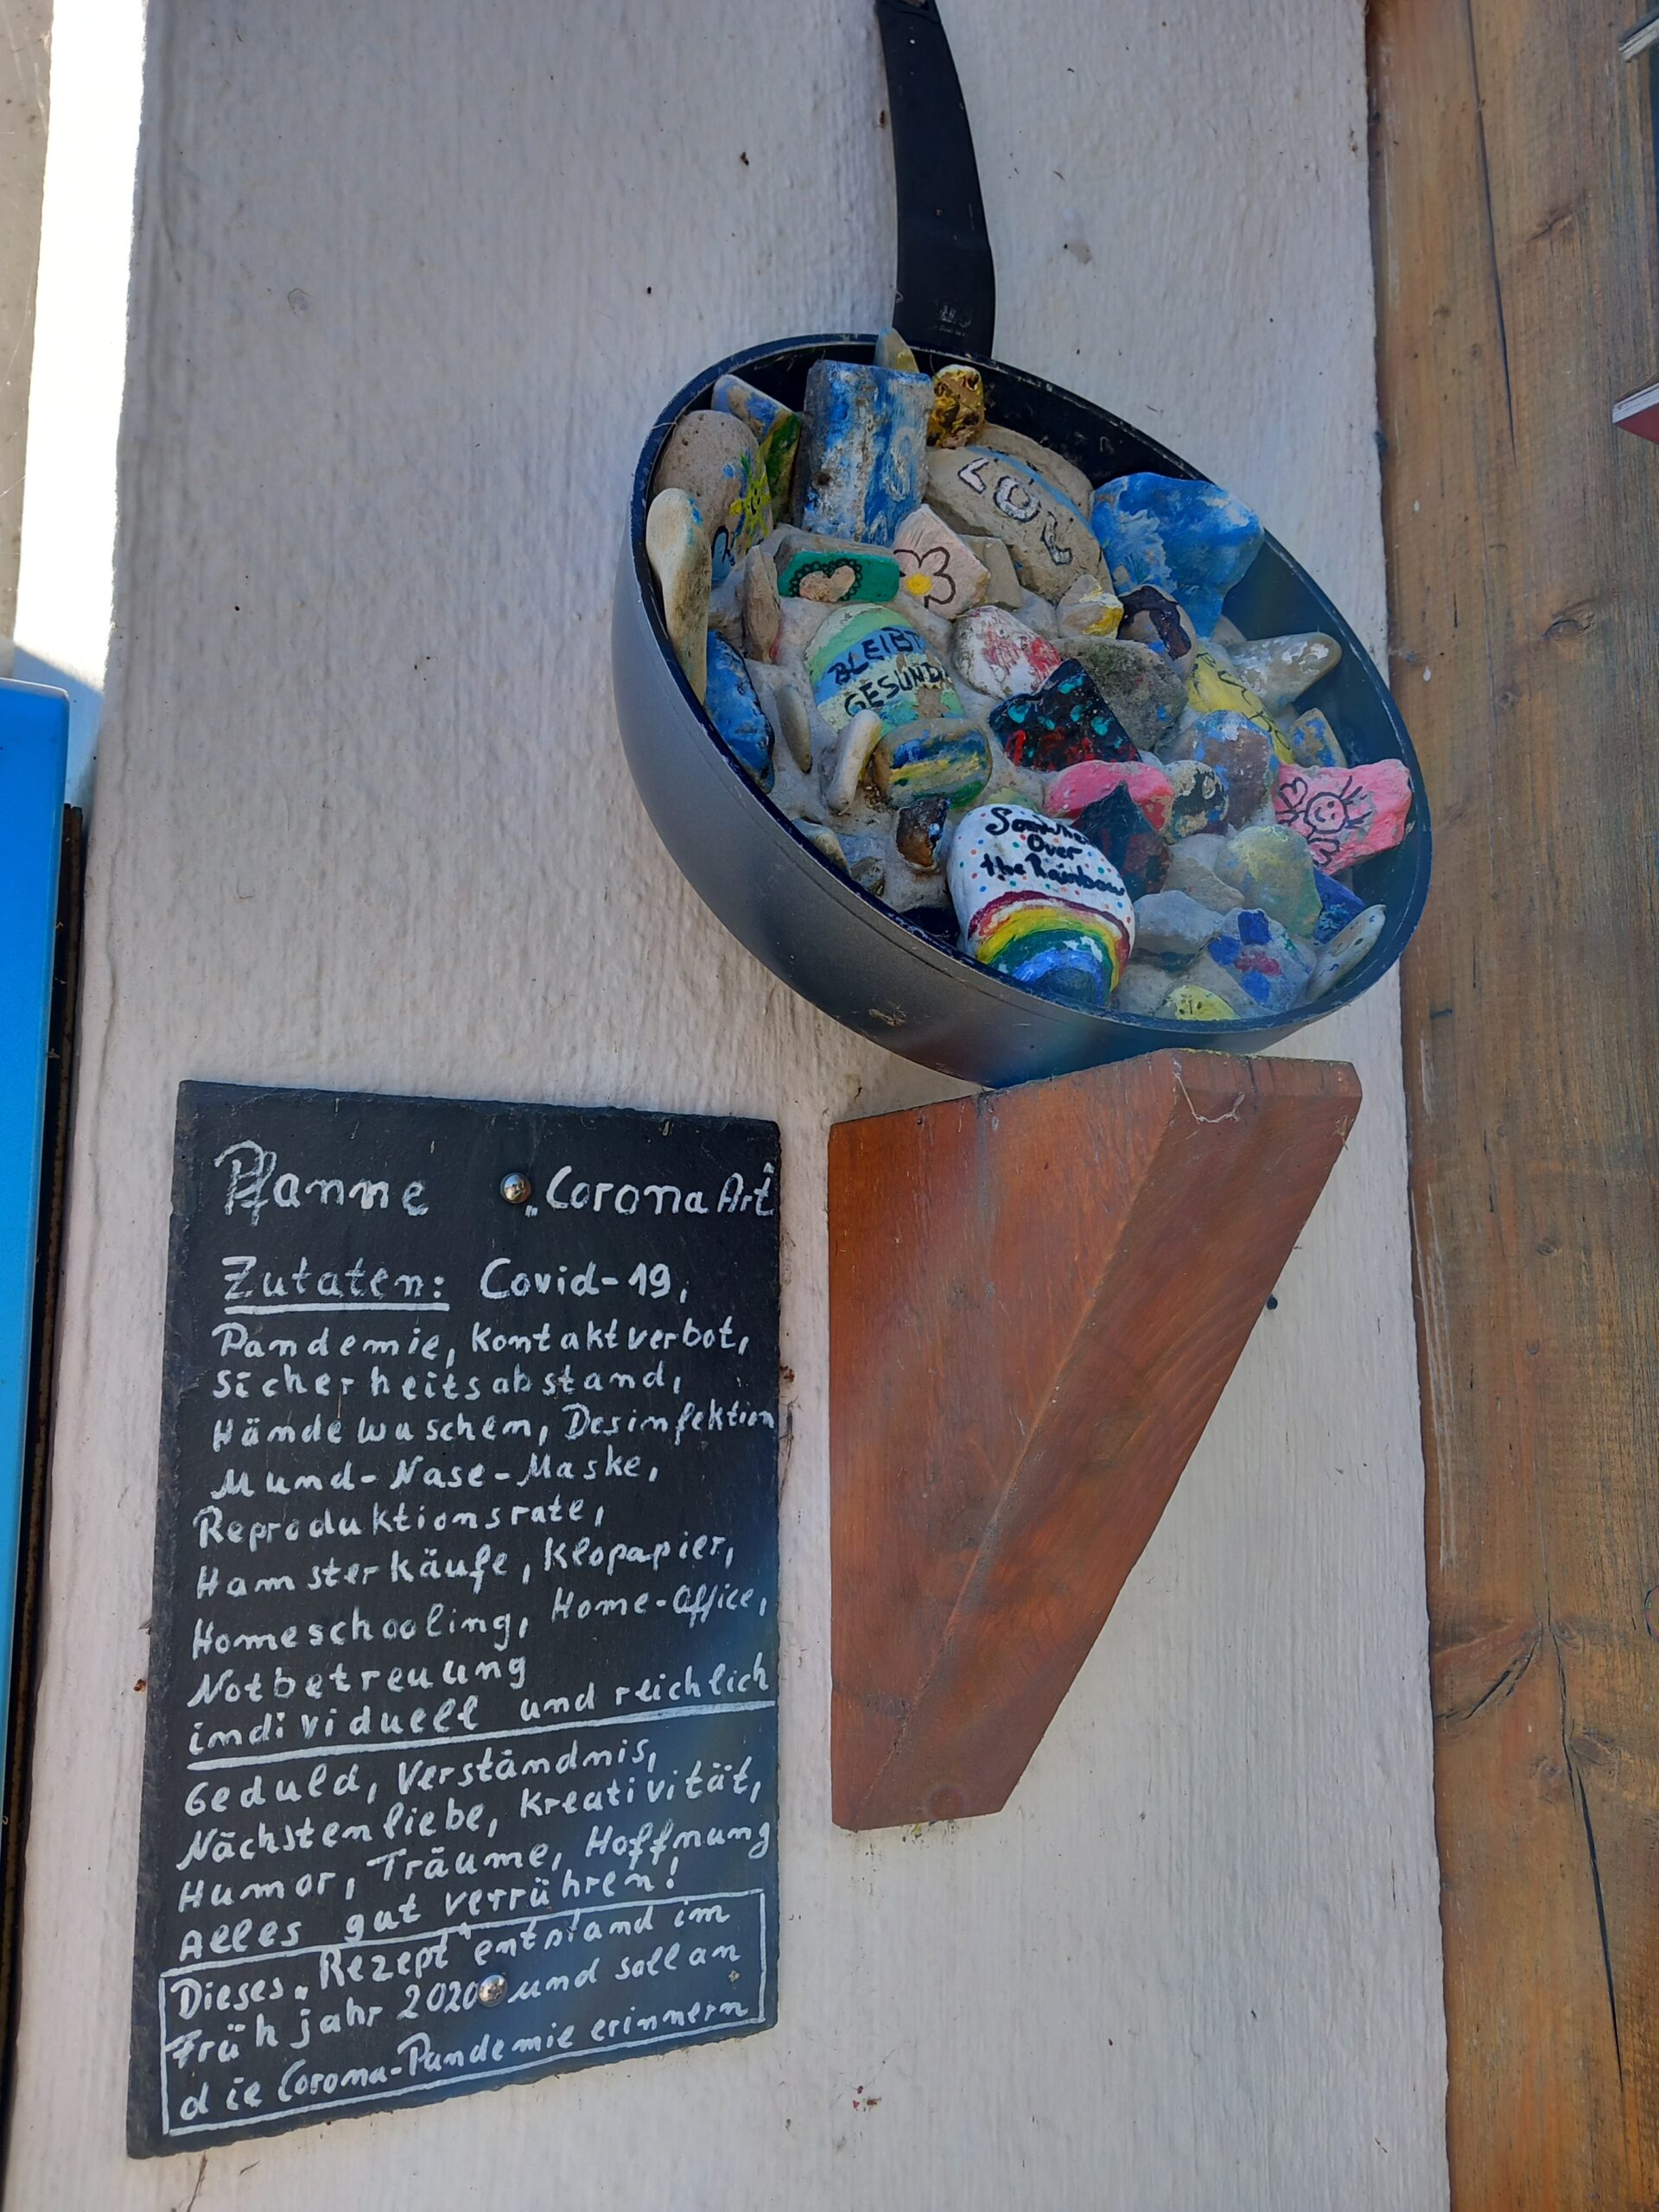 LOVE
BLEIBT
GESUND
Somewhe
Over
the Rainbow
Pfanne „Corona Art"
Zutaten: Covid-19,
Pandemie, Kontaktverbot,
Sicherheitsabstand,
Händewaschen, Desinfektion
Mund-Nase-Maske,
Reproduktionsrate,
Hamsterkäufe, Klopapier,
Homeschooling, Home-Office,
Notbetreuung
individuell und reichlich
Geduld, Verständnis,
Nächstenliebe, Kreativität,
Humor, Träume, Hoffnung
Alles gut verrühren!
Dieses „Rezept" entstand im
Frühjahr 2020 und soll an
die Corona-Pandemie erinnern